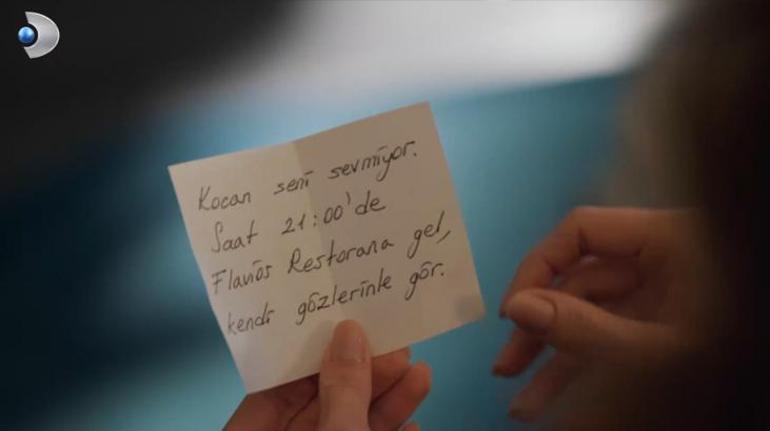 Kocan seni sevmiyor.
Saat 21:00'de
Flavios Restorana gel,
kendi gözlerinle gör.